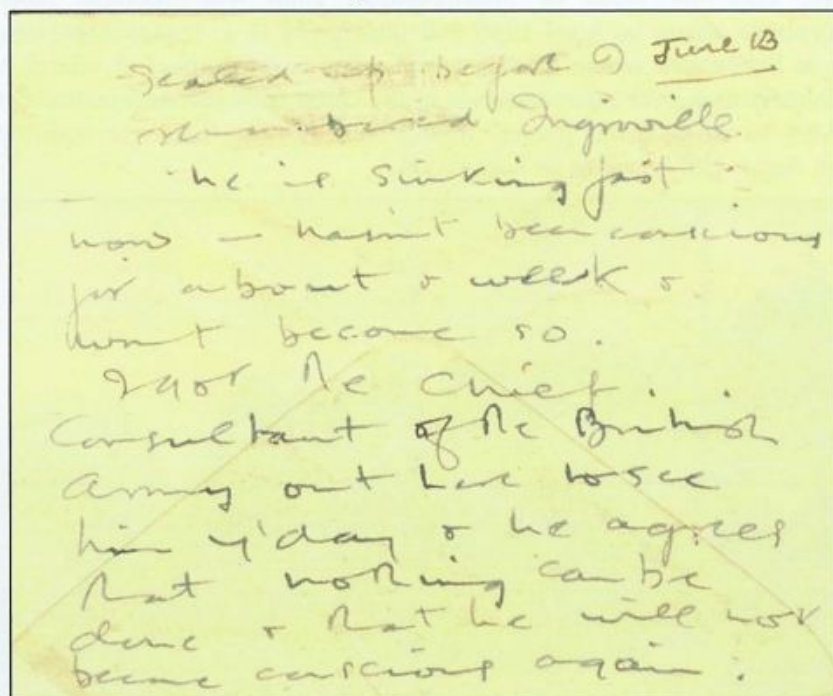 Sealed up before I June 13
remembered Inginville
he is sinking fast
now – hasn't been conscious
for about a week &
won't become so.
I got the Chief
Consultant of the British
Army out here to see
him y'day & he agrees
that nothing can be
done & that he will not
become conscious again.